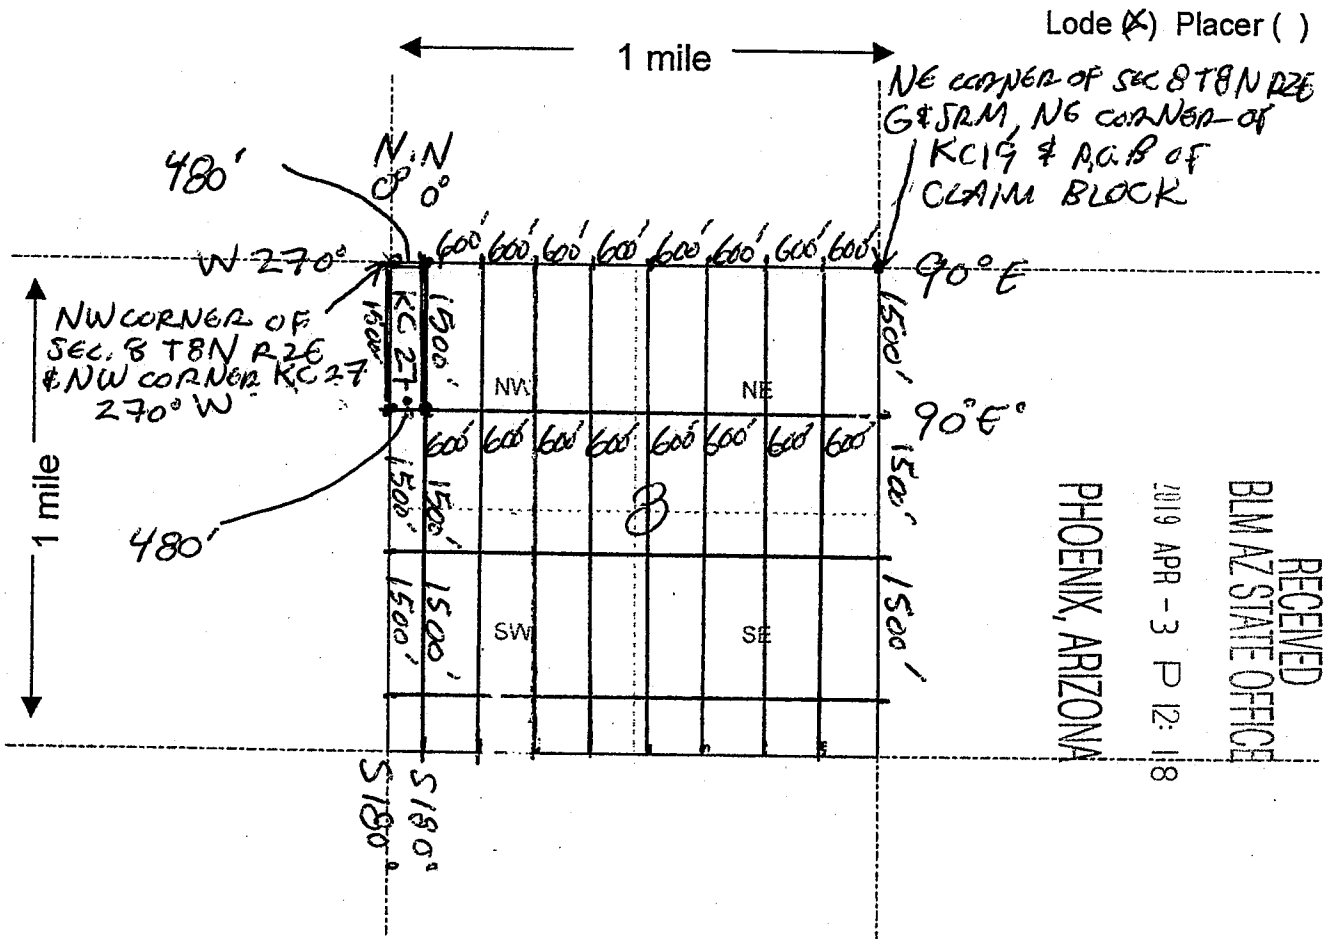 Lode (X) Placer ( )
1 mile
NE CORNER OF SEC 8 T8N R2E
G&SRM, NE CORNER OF
KC19 & P.O.B OF
CLAIM BLOCK
480'
N 0° N 0°
W 270°
600' 600' 600' 600' 600' 600' 600' 600'
90° E
NW CORNER OF
SEC. 8 T8N R2E
& NW CORNER KC27
270° W
1500'
KC 27
1500'
NW
NE
1500'
90° E°
600' 600' 600' 600' 600' 600' 600' 600'
1 mile
480'
1500'
1500'
8
1500'
1500'
1500'
SW
SE
1500'
S 180°
S 180°
RECEIVED
BLM AZ STATE OFFICE
2019 APR -3 P 12: 18
PHOENIX, ARIZONA